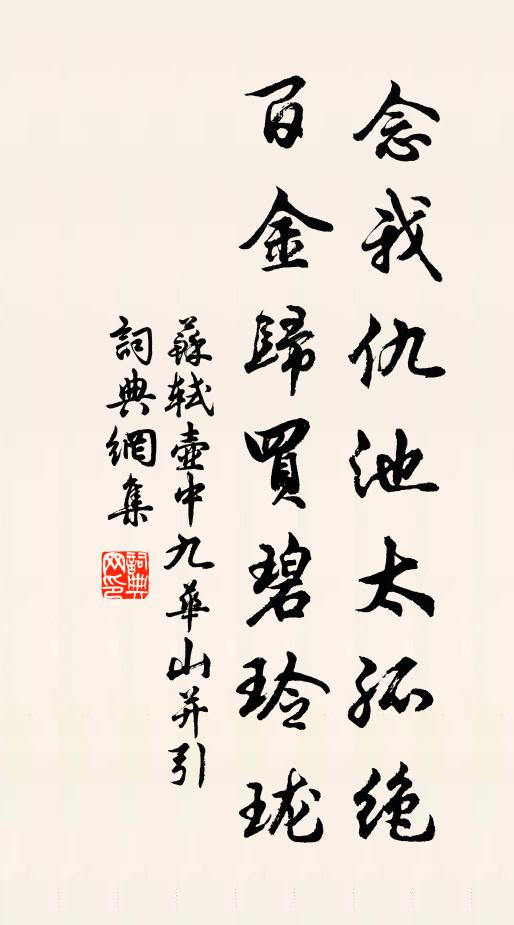 念我仇池太孤绝
百金歸買碧玲珑
蘇轼壺中九華山并引
詞典網集
詞典网印